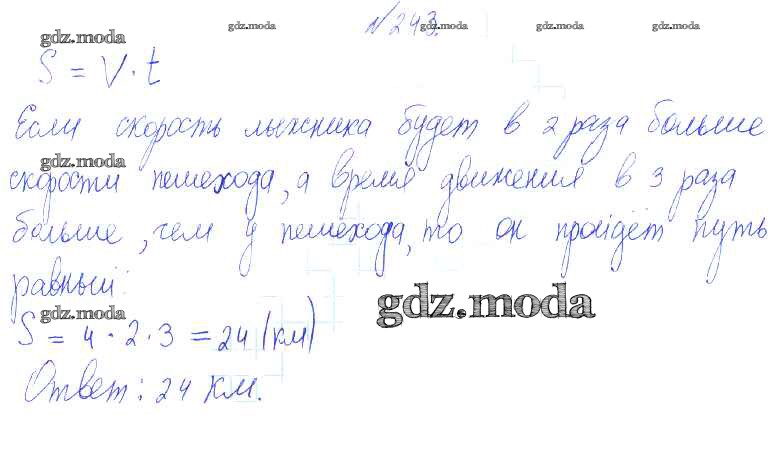 №243.
gdz.moda gdz.moda gdz.moda gdz.moda
S = V · t
Если скорость лыжника будет в 2 раза больше
gdz.moda
скорости пешехода, а время движения в 3 раза
больше, чем у пешехода, то он пройдёт путь
равный:
gdz.moda
gdz.moda
S = 4 · 2 · 3 = 24 (км)
Ответ: 24 км.